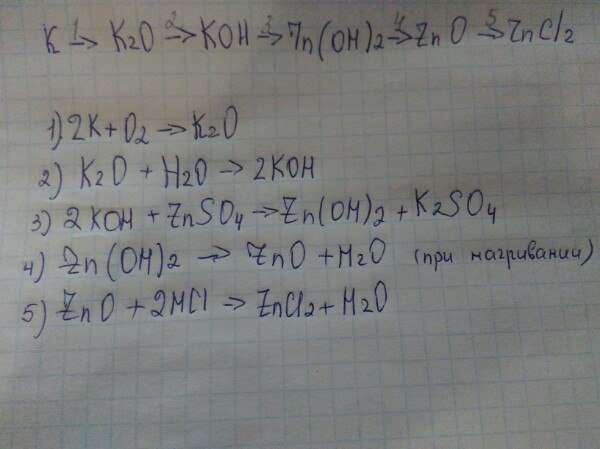 K 1→ K2O 2→ KOH 3→ Zn(OH)2 4→ ZnO 5→ ZnCl2
1) 2K + O2 → K2O
2) K2O + H2O → 2KOH
3) 2KOH + ZnSO4 → Zn(OH)2 + K2SO4
4) Zn(OH)2 → ZnO + H2O (при нагривании)
5) ZnO + 2HCl → ZnCl2 + H2O